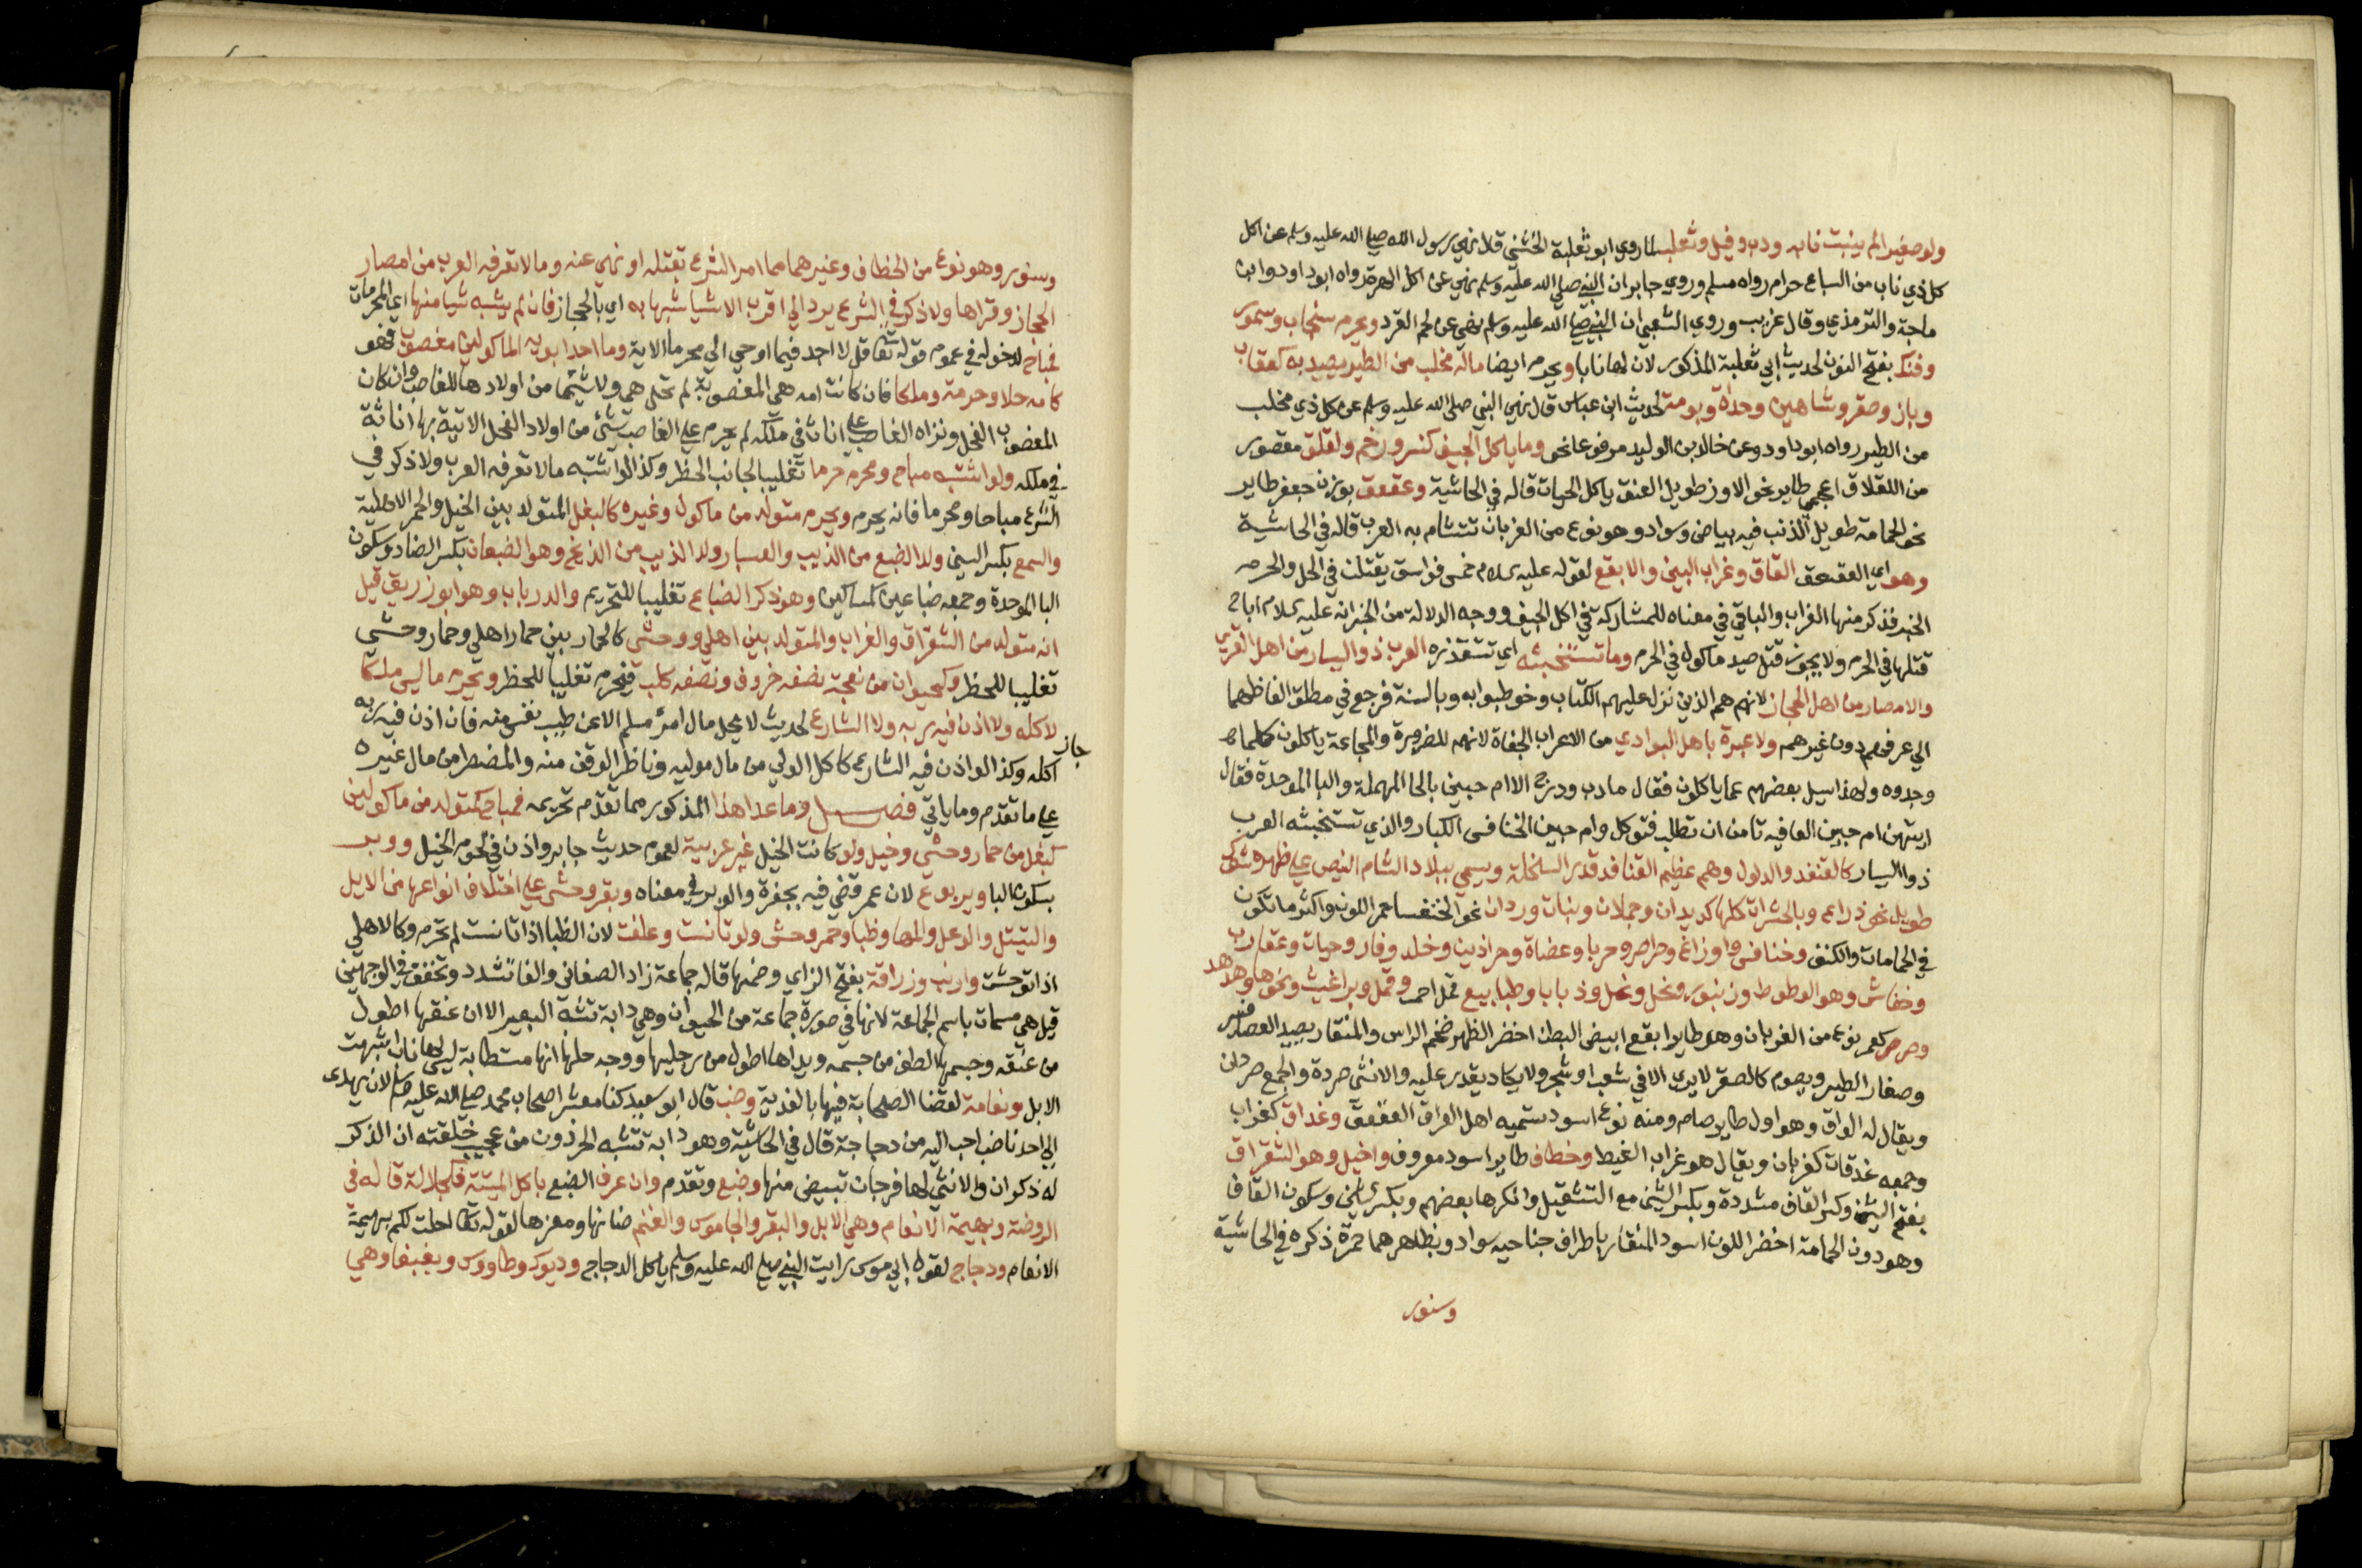 ولو صغيرا لم ينبت نابه ودب وفيل وثعلب لما روي ابو ثعلبة الخشني قال نهي رسول الله صلي الله عليه وسلم عن اكل
كل ذي ناب من السباع حرام رواه مسلم وروي جابر ان النبي صلي الله عليه وسلم نهي عن اكل الهرة رواه ابوداود وابن
ماجة والترمذي وقال غريب وروي الشعبي ان النبي صلي الله عليه وسلم نهي عن لحم القرد ويحرم سنجاب وسمور
وفنك بفتح النون لحديث ابي ثعلبة المذكور لان لها نابا ويحرم ايضا ماله مخلب من الطير يصيد به كعقاب
وباز وصقر وشاهين وحداة وبومة لحديث ابن عباس قال نهي النبي صلي الله عليه وسلم عن كل ذي مخلب
من الطير رواه ابوداود وعن خالد بن الوليد مرفوعا نحوه وما ياكل الجيف كنسر ورخم ولقلق مقصور
من اللقلاق اعجمي طاير نحو الاوز طويل العنق ياكل الحيات قاله في الحاشية وعقعق بوزن جعفر طاير
نحو الحمامة طويل الذنب فيه بياض وسواد وهو نوع من الغربان تتشام به العرب قاله في الحاشية
وهو اي العقعق القاق وغراب البين والابقع لقوله عليه السلام خمس فواسق يقتلن في الحل والحرم
الخبر فذكر منها الغراب والباقي في معناه للمشاركة في اكل الجيف ووجه الدلالة من الخبر انه عليه السلام اباح
قتلها في الحرم ولا يجوز قتل صيد ماكول في الحرم وما تستخبثه اي تستقذره العرب ذو اليسار من اهل القري
والامصار من اهل الحجاز لانهم هم الذين نزل عليهم الكتاب وخوطبوا به وبالسنة فرجع في مطلق الفاظهما
الي عرفهم دون غيرهم ولا عبرة باهل البوادي من الاعراب الجفاة لانهم للضرورة والمجاعة ياكلون كلما
وجدوه ولهذا سيل بعضهم عما ياكلون فقال ما دب ودرج الا ام حبين بالحا المهملة والبا الموحدة فقال
ليتهن ام حبين العافية تامن ان تطلب فتوكل وام حبين الخنافس الكبار والذي تستخبثه العرب
ذوا اليسار كالقنفد والدلول وهم عظيم القنافد قدر السخلة ويسمي ببلاد الشام النيص علي ظهره شوك
طويل نحو ذراع وبالحشرات كلها كديدان وجعلان وبنات وردان نحو الخنفسا حمر اللون واكثر ما تكون
في الحمامات والكنف وخنافس واوزاغ وصراصر وحربا وعضاة وجراذين وخلد وفار وحيات وعقارب
وخفاش وهو الوطواط وزنبور ونحل ونمل وذباب وطبابيع قمل احمر وقمل وبراغيث ونحوها وهدهد
وصرد كعمر نوع من الغربان وهو طاير ابقع ابيض البطن اخضر الظهر ضخم الراس والمنقار يصيد العصافير
وصغار الطير ويصوم كالصقر لا يري الا في شعب او شجر ولا يكاد يقدر عليه والانثي صردة والجمع صردان
ويقال له الواق وهو اول طاير صام ومنه نوع اسود تسميه اهل العراق العقعق وغداف كغراب
وجمعه غدفات كغربان ويقال هو غراب الغيط وخطاف طاير اسود معروف واخيل وهو الشقراق
بفتح الشين وكسر القاف مشددة وبكسر الشين مع التثقيل وانكرها بعضهم وبكسر الشين وسكون القاف
وهو دون الحمامة اخضر اللون اسود المنقار باطراف جناحيه سواد وبظاهرهما حمرة ذكره في الحاشية
وسنور
وسنور وهو نوع من الخطاف وغيرهما مما امر الشرع بقتله او نهي عنه وما لا تعرفه العرب من امصار
الحجاز وقراها ولا ذكر في الشرع يرد الي اقرب الاشيا شبها به اي بالحجاز فان لم يشبه شيا منها اي المحرمات
فمباح لدخوله في عموم قوله تعالي قل لا اجد فيما اوحي الي محرما الاية وما احد ابويه الماكولين مغصوب فهو
كامه حلا وحرمة وملكا فان كانت امه هي المغصوبة لم تحل هي ولا شي من اولادها للغاصب وان كان
المغصوب الفحل ونزاه الغاصب علي اناث في ملكه لم يحرم علي الغاصب شي من اولاد الفحل الاتية بها اناثه
في ملكه ولو اشتبه مباح ومحرم حرما تغليبا لجانب الحظر وكذا لو اشتبه ما لا تعرفه العرب ولا ذكر في
الشرع مباحا ومحرما فانه يحرم ويحرم متولد من ماكول وغيره كالبغل المتولد بين الخيل والحمر الاهلية
والسمع بكسر السين ولد الضبع من الذيب والعسبار ولد الذيب من الذيخ وهو الضبعان بكسر الضاد وسكون
البا الموحدة وجمعه ضباعين كمساكين وهو ذكر الضباع تغليبا للتحريم والدرباب وهو ابو زريق قيل
انه متولد من الشقراق والغراب والمتولد بين اهلي ووحشي كالحمار بين حمار اهلي وحمار وحشي
تغليبا للحظر وكحيوان من نعجة نصفه خروف ونصفه كلب فيحرم تغليبا للحظر ويحرم ما ليس ملكا
لاكله ولا اذن فيه ربه ولا الشارع لحديث لا يحل مال امرئ مسلم الا عن طيب نفس منه فان اذن فيه ربه
جاز
اكله وكذا لو اذن فيه الشارع كاكل الولي من مال موليه وناظر الوقف منه والمضطر من مال غيره
علي ما تقدم وما ياتي فصل وما عدا هذا المذكور مما تقدم تحريمه فمباح كمتولد من ماكولين
كبغل من حمار وحشي وخيل ولو كانت الخيل غير عربية لعموم حديث جابر واذن في لحوم الخيل ووبر
بسكون البا ويربوع لان عمر قضي فيه بجفرة والوبر في معناه وبقر وحشي علي اختلاف انواعها من الايل
والتيتل والوعل والمها وظبا وحمر وحش ولو تانست وعلفت لان الظبا اذا تانست لم تحرم وكالاهلي
اذا توحشت وارنب وزرافة بفتح الزاي وضمها قاله جماعة زاد الصغاني والفا تشدد وتخفف في الوجهين
قيل هي مسمات باسم الجماعة لانها في صورة جماعة من الحيوان وهي دابة تشبه البعير الا ان عنقها اطول
من عنقه وجسمها الطف من جسمه ويداها اطول من رجليها ووجه حلها انها مستطابة ليس لها ناب اشبهت
الابل ونعامة لقضا الصحابة فيها بالفدية وضب قال ابو سعيد كنا معشر اصحاب محمد صلي الله عليه وسلم لان يهدي
الي احدنا ضب احب اليه من دجاجة قال في الحاشية وهو دابة تشبه الحرذون من عجيب خلقته ان الذكر
له ذكران والانثي لها فرجان تبيض منها وضبع وتقدم وان عرف الضبع باكل الميتة فكجلالة قاله في
الروضة وبهيمة الانعام وهي الابل والبقر والجاموس والغنم ضانها ومعزها لقوله تعالي احلت لكم بهيمة
الانعام ودجاج لقول ابي موسي رايت النبي صلي الله عليه وسلم ياكل الدجاج وديوك وطاووس وببغبغا وهي